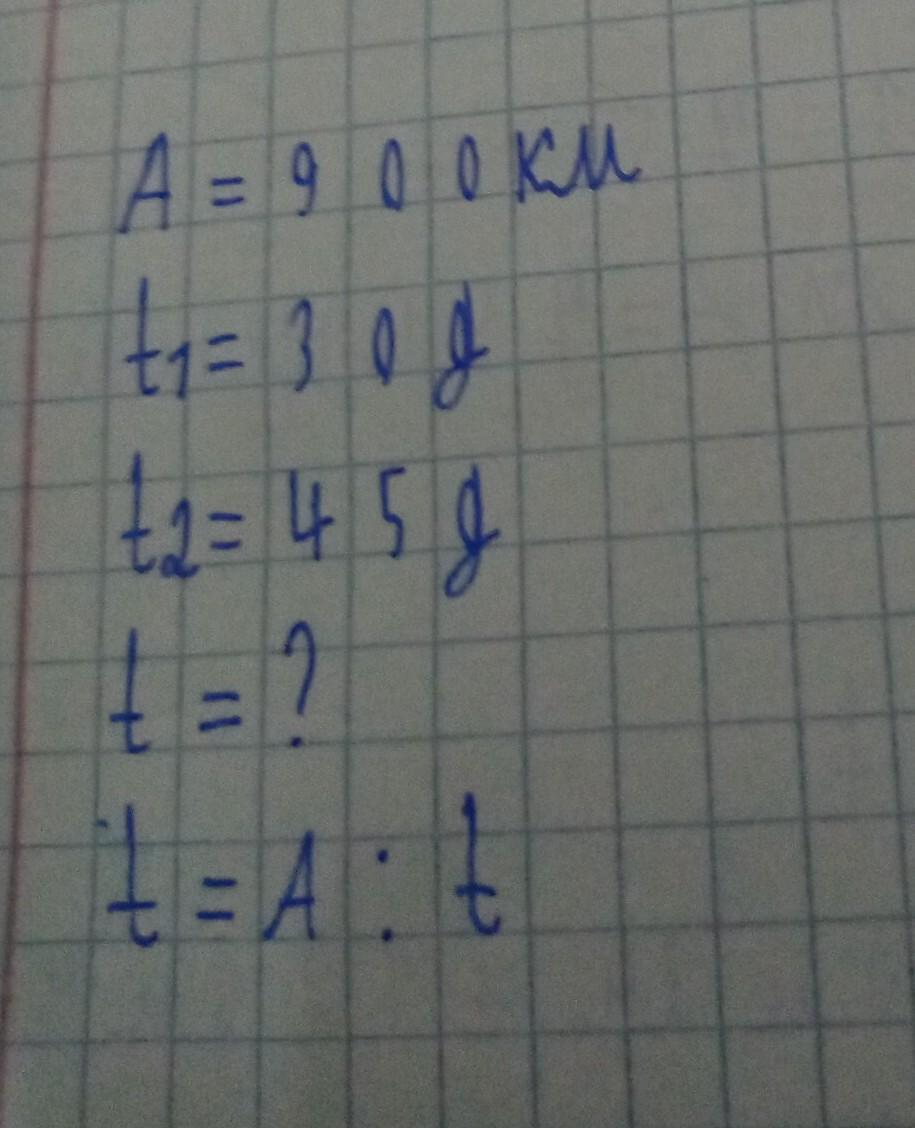 A = 900км
t1 = 30 g
t2 = 45 g
t = ?
t = A : t